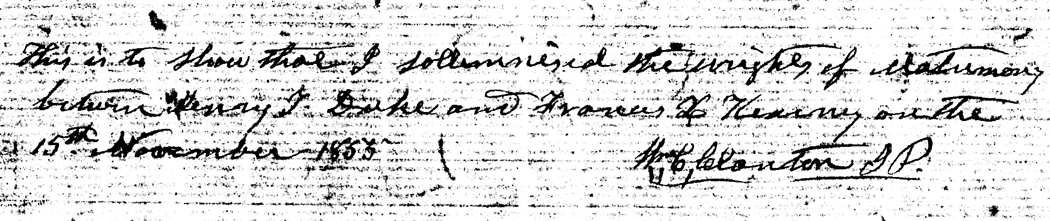 This is to show that I sollemnised the wrights of Matrimony
between Henry T Duke and Frances L Kearney on the
15th November 1855
Wm C, Clanton J P.